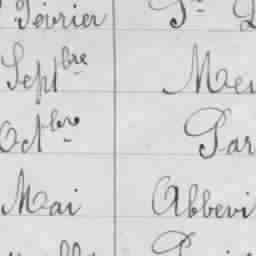 Février St
Septbre Me
Octbre Par
Mai Abbevi